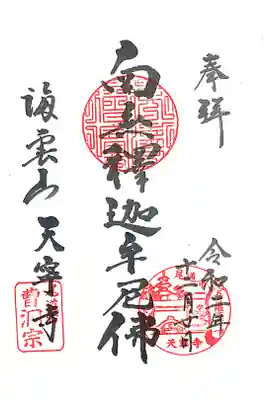 奉拝
令和二年
十一月
南無釋迦牟尼佛
海雲山 天寧寺
曹洞宗
天寧寺